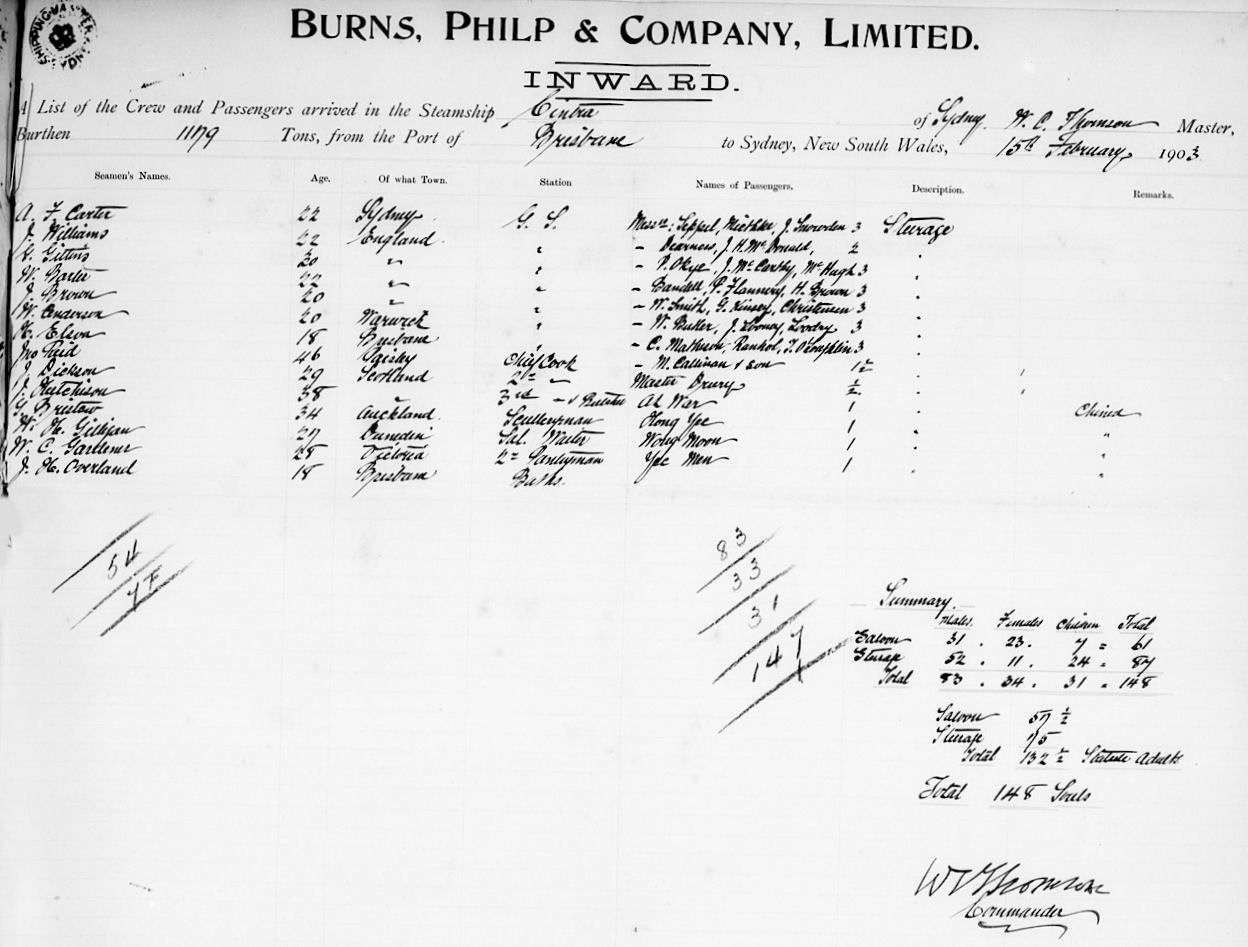 BURNS, PHILP & COMPANY, LIMITED.
INWARD.
A List of the Crew and Passengers arrived in the Steamship Cintra of Sydney W. C. Thomson Master,
Burthen 1179 Tons, from the Port of Brisbane to Sydney, New South Wales, 15th February 1903
Seamen's Names. Age. Of what Town. Station Names of Passengers. Description. Remarks.
A. F. Carter 22 Sydney G. S. Messrs: Seppel, Miethke, J. Snowden 3 Steerage
J. Williams 22 England " - Dearness, J. H. McDonald, 2 "
Gittins 30 " " - P. Okye, J. McCarthy, McHugh 3 "
W. Barter 22 " " - Bandell, P. Flannery, H. Brown 3 "
J. Brown 20 " " - W. Smith, G. Kinsey, Christensen 3 "
W. Anderson 20 Warwick " - W. Baker, J. Looney, 3 "
H. Elson 18 Brisbane " - C. Matheson, T. O'Loughlin 3 "
Jno Reid 46 Paisley Chief Cook - M. Callinan & son 1½ "
J. Dickson 29 Scotland 2nd " Master Drury ½ "
J. Hutchison 38 " 3rd " & Butcher Ah War 1 " Chinese
Bristow 34 Auckland Sculleryman Hong Yee 1 " "
W. H. 27 Dunedin Sal. Waiter Wong Moon 1 " "
W. C. Gardener 28 Victoria 2nd Pantryman Yee Men 1 " "
J. H. Overland 18 Brisbane Baths.
54
83
33
31
147
Summary.
Males. Females Children Total
Saloon 31 . 23 . 7 = 61
Steerage 52 . 11 . 24 = 87
Total 83 . 34 . 31 = 148
Saloon 57 ½
Steerage 75
Total 132 ½ Statute Adults
Total 148 Souls
W C Thomson
Commander